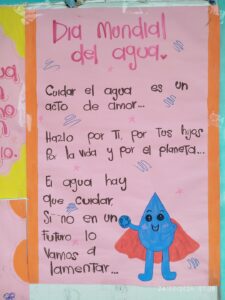 Dia Mundial
del agua.
Cuidar el agua es un
acto de amor...
Hazlo por Ti, por Tus hijos
Por la vida y por el planeta...
El agua hay
que cuidar,
Si no en un
Futuro lo
Vamos a
lamentar...